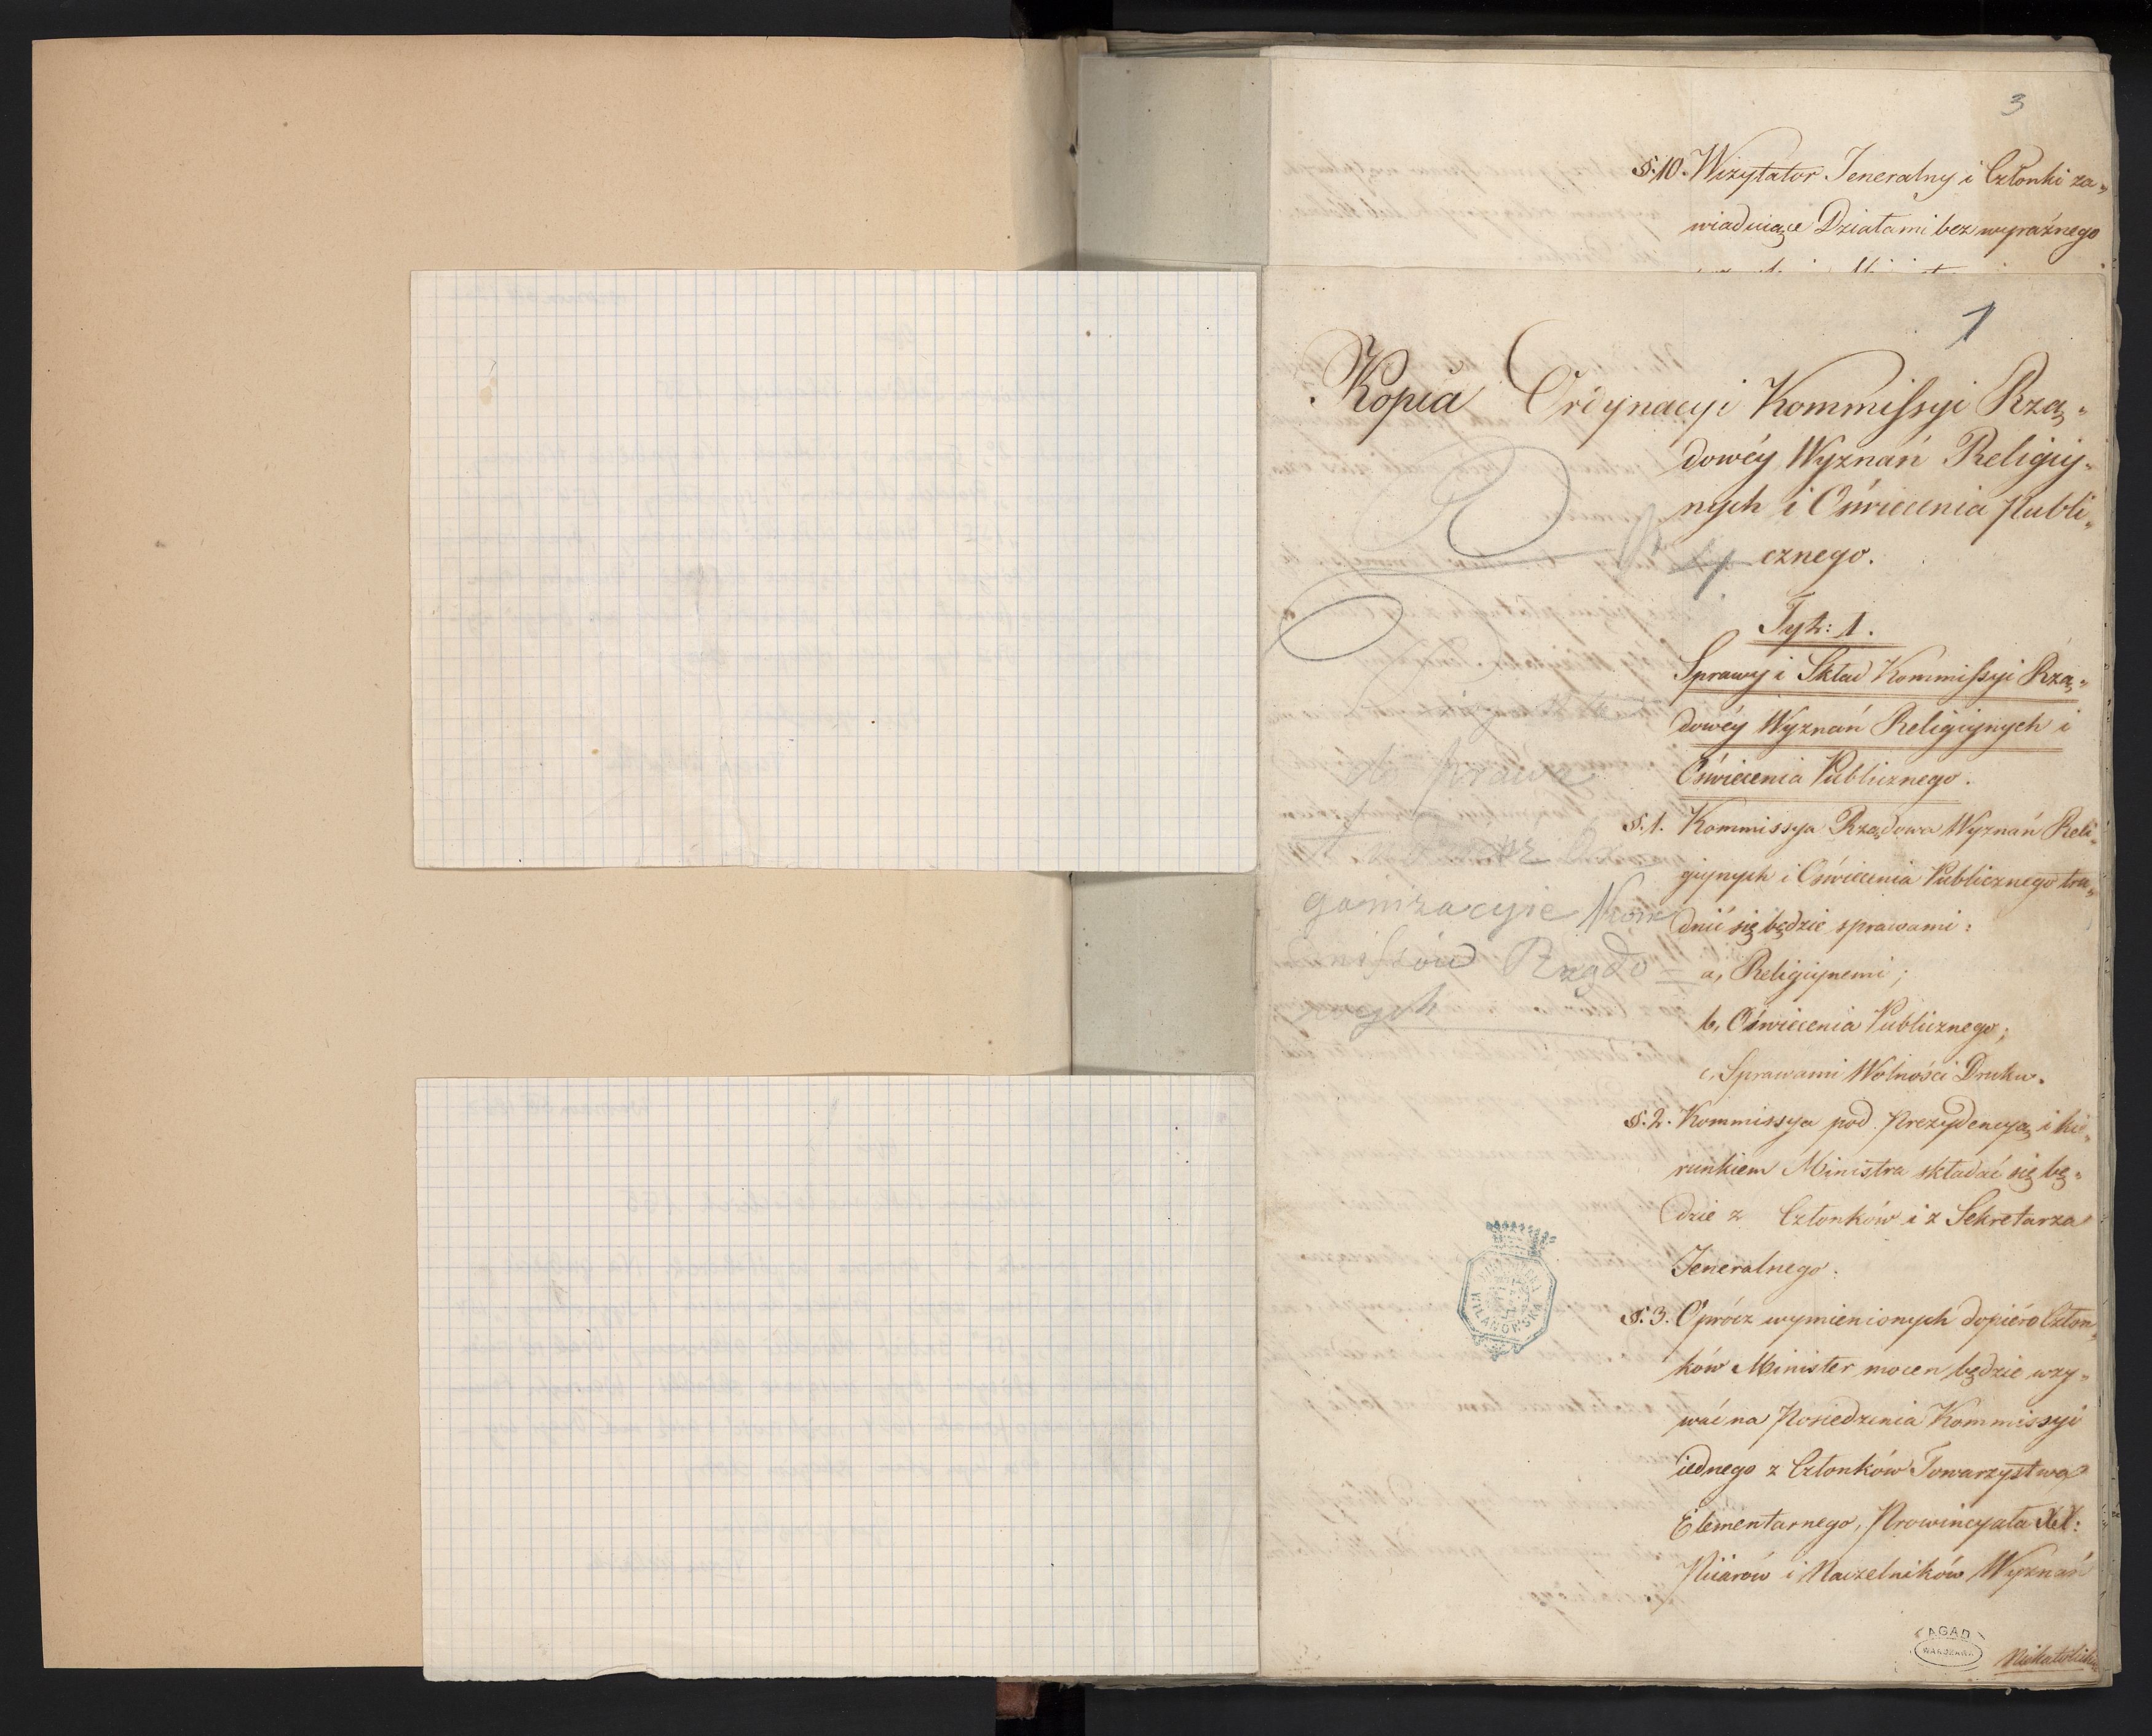 3
§.10. Wizytator Jeneralny i Członki za„
wiaduiące Działami bez wyraźnego
1
Kopia Ordynacyi Kommissyi Rzą„
dowéy Wyznań Religiy„
nych i Oświecenia Publi„
cznego.
Tyt: 1.
Sprawy i Skład Kommissyi Rzą„
dowéy Wyznań Religiynych i
Oświecenia Publicznego.
§.1. Kommissya Rządowa Wyznań Reli„
giynych i Oświecenia Publicznego tru„
dnić się będzie sprawami:
a, Religiynemi;
b, Oświecenia Publicznego;
c, Sprawami Wolności Druku.
§.2. Kommissya pod Prezydencyą i kie„
runkiem Ministra składać się bę„
dzie z Członków i z Sekretarza
Jeneralnego.
§.3. Oprócz wymienionych dopiéro Człon„
ków Minister mocen będzie wzy„
wać na Posiedzenia Kommissyi
iednego z Członków Towarzystwa
Elementarnego, Prowincyała XX:
Piiarów i Naczelników Wyznań
Niekatolickich
do prawa
ganizacyie Kom
missiów Rządo=
wych
WILANOWSKA
AGAD
WARSZAWA